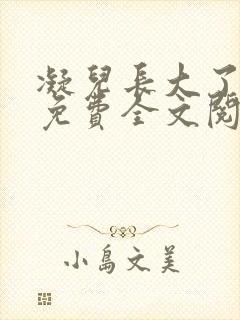 凝兒長大了
免費全文閱
小島文美